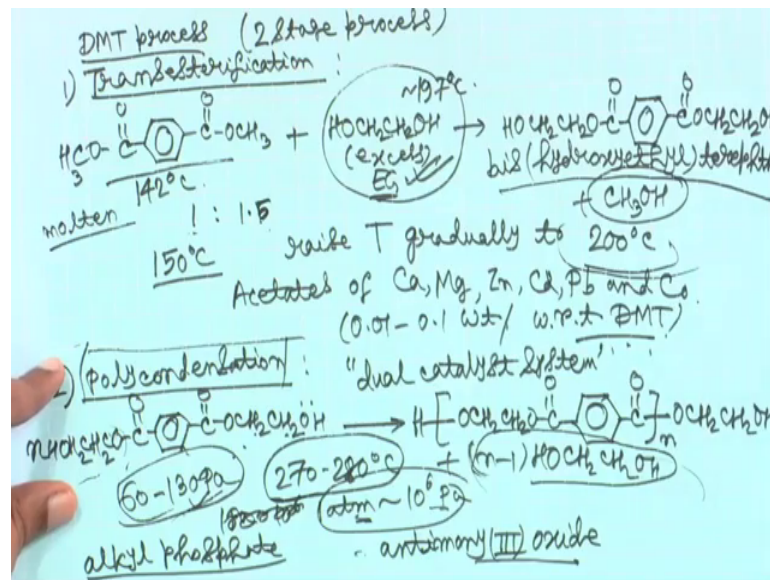 DMT process (2 stage process)
1) Transesterification :
~197°C.
H₃CO-C(=O)-⌬-C(=O)-OCH₃ + HOCH₂CH₂OH → HOCH₂CH₂O-C(=O)-⌬-C(=O)OCH₂CH₂O
142°C. (excess) EG bis(hydroxyethyl)terephth
molten 1 : 1.5 + CH₃OH
150°C raise T gradually to 200°C.
Acetates of Ca, Mg, Zn, Cd, Pb and Co
(0.01-0.1 wt/ w.r.t DMT)
2) Polycondensation : "dual catalyst system"
nHOCH₂CH₂O-C(=O)-⌬-C(=O)-OCH₂CH₂OH → H-[OCH₂CH₂O-C(=O)-⌬-C(=O)]n-OCH₂CH₂OH
60-130Pa 270-280°C + (n-1) HOCH₂CH₂OH
atm ~ 10⁶ Pa
alkyl phosphate antimony(III) oxide